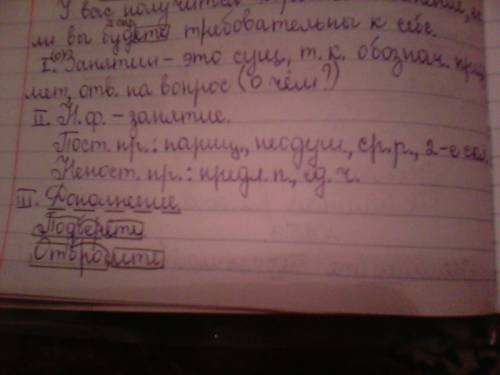 У вас получится
ли вы будете требовательны к себе.
I. (о) Занятии - это сущ, т.к. обознач. пред
мет, отв. на вопрос (о чём?)
II. Н.ф. - занятие.
Пост. пр.: нариц., неодуш., ср.р., 2-е скл.
Непост. пр.: предл.п., ед.ч.
III. Дополнение.
Подберите